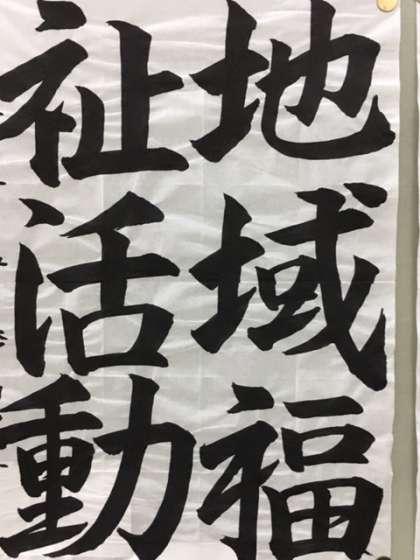 地域福
祉活動